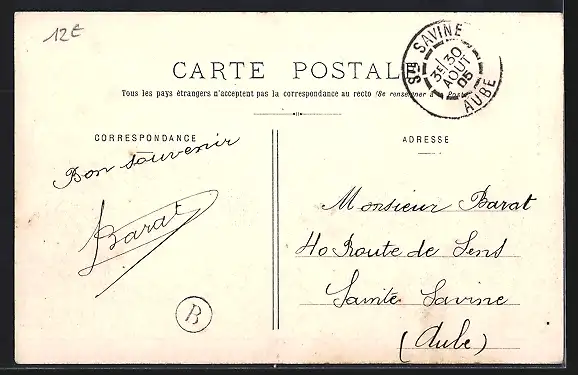 12€
STE SAVINE
3E 30
AOUT
05
AUBE
CARTE POSTALE
Tous les pays étrangers n'acceptent pas la correspondance au recto (Se renseigner à la Poste)
CORRESPONDANCE
Bon souvenir
Barat
B
ADRESSE
Monsieur Barat
40 Route de Sens
Sainte Savine
(Aube)